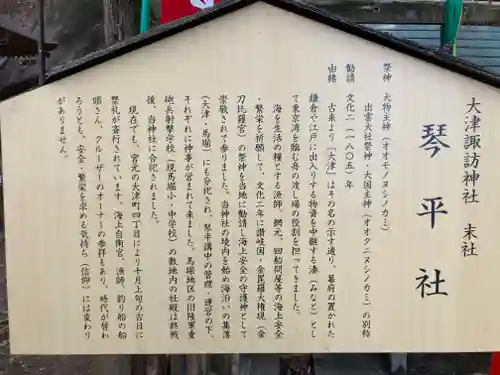 琴平社
大津諏訪神社 末社
琴平社
祭神 大物主神（オオモノヌシノカミ）
出雲大社祭神・大国主神（オオクニヌシノカミ）の別称
勧請 文化二（一八〇五）年
由緒 古来より「大津」はその名の示す通り、幕府の置かれた
鎌倉や江戸に出入りする物資を中継する湊（みなと）とし
て東京湾を臨む舟の渡し場の役割を担ってきました。
海を生活の糧とする漁師、網元、回船問屋等の海上安全
・繁栄を祈願して、文化二年に讃岐国・金毘羅大権現（金
刀比羅宮）の祭神を当地に勧請し海上安全の守護神として
崇敬されて参りました。当神社の境内を始め海沿いの集落
（大津・馬堀）にも分化され、琴平講中の管理・運営の下、
それぞれに神事が営まれて来ました。馬堀地区の旧陸軍重
砲兵射撃学校（現馬堀小・中学校）の敷地内の社殿は終戦
後、当神社に合祀されました。
現在でも、宮元の大津町四丁目により十月上旬の吉日に
祭礼が斎行されています。海上自衛官、漁師、釣り船の船
頭さん、クルーザーのオーナーの参拝もあり、時代が替わ
ろうとも、安全・繁栄を求める気持ち（信仰）には変わり
がありません。